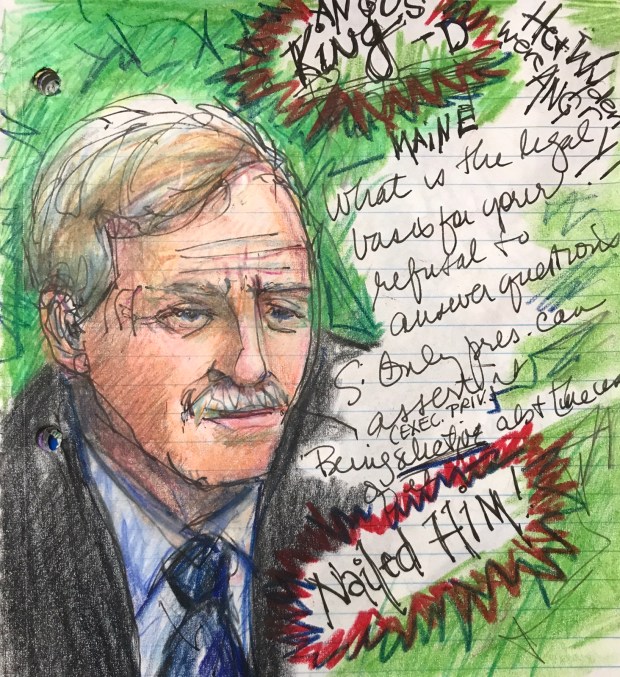 ANGUS
KING -D
MAINE
He + Wyden
were ANGRY!
What is the legal
basis for your
refusal to
answer questions
S. Only pres. can
assert it
(EXEC. PRIV.)
Being selective abt the
of
Nailed HIM!